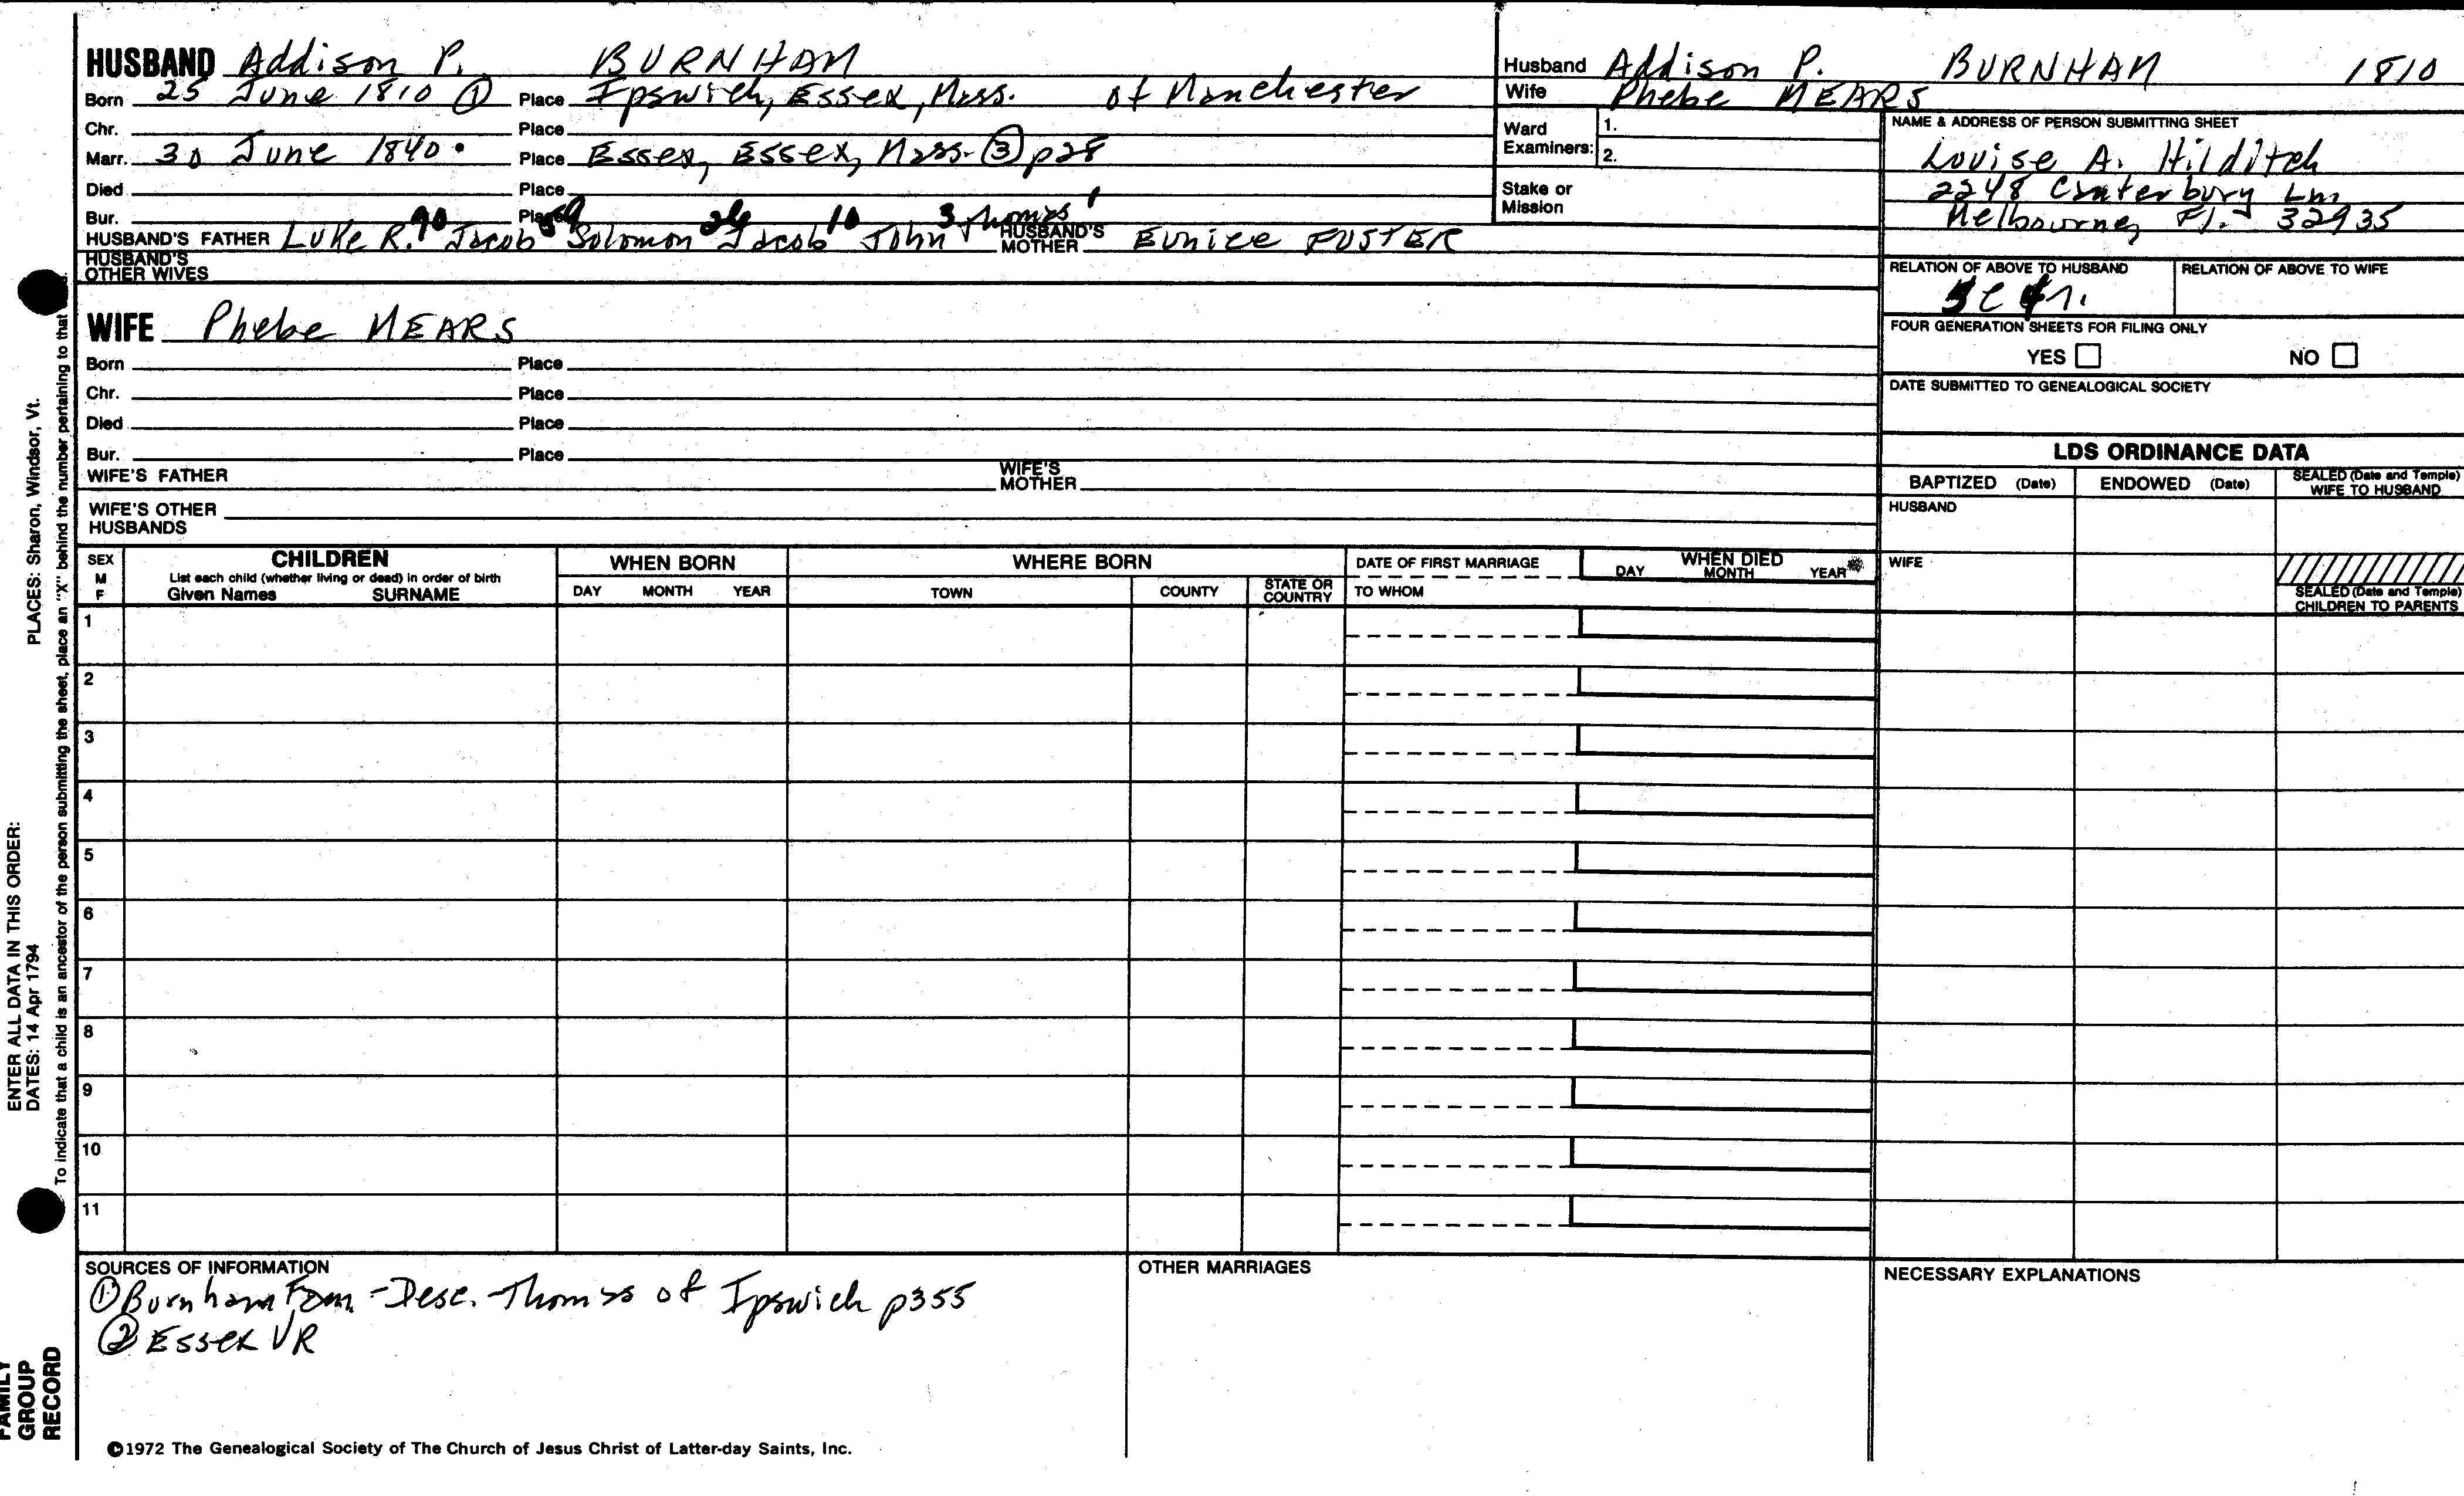 HUSBAND Addison P. BURNHAM
Born 25 June 1810 ① Place Ipswich, Essex, Mass. of Manchester
Chr. Place
Marr. 30 June 1840 Place Essex, Essex, Mass. ③ p28
Died Place
Bur. Place
HUSBAND'S FATHER Luke R. 90 Jacob 59 Solomon Jacob 10 John 3 Thomas 1 HUSBAND'S MOTHER Eunice FOSTER
HUSBAND'S OTHER WIVES
WIFE Phebe MEARS
Born Place
Chr. Place
Died Place
Bur. Place
WIFE'S FATHER WIFE'S MOTHER
WIFE'S OTHER HUSBANDS
Husband Addison P. BURNHAM 1810
Wife Phebe MEARS
Ward Examiners: 1.
2.
Stake or Mission
NAME & ADDRESS OF PERSON SUBMITTING SHEET
Louise A. Hilditch
2248 Canterbury Ln
Melbourne, Fl. 32935
RELATION OF ABOVE TO HUSBAND RELATION OF ABOVE TO WIFE
FOUR GENERATION SHEETS FOR FILING ONLY
YES NO
DATE SUBMITTED TO GENEALOGICAL SOCIETY
LDS ORDINANCE DATA
BAPTIZED (Date) ENDOWED (Date) SEALED (Date and Temple) WIFE TO HUSBAND
HUSBAND
WIFE
SEALED (Date and Temple) CHILDREN TO PARENTS
SEX M F CHILDREN WHEN BORN WHERE BORN DATE OF FIRST MARRIAGE WHEN DIED
List each child (whether living or dead) in order of birth
Given Names SURNAME DAY MONTH YEAR TOWN COUNTY STATE OR COUNTRY TO WHOM DAY MONTH YEAR
1
2
3
4
5
6
7
8
9
10
11
SOURCES OF INFORMATION
① Burnham Fam - Desc. Thomas of Ipswich p355
② Essex VR
OTHER MARRIAGES
NECESSARY EXPLANATIONS
©1972 The Genealogical Society of The Church of Jesus Christ of Latter-day Saints, Inc.
FAMILY GROUP RECORD
ENTER ALL DATA IN THIS ORDER:
DATES: 14 Apr 1794 PLACES: Sharon, Windsor, Vt.
To indicate that a child is an ancestor of the person submitting the sheet, place an "X" behind the number pertaining to that